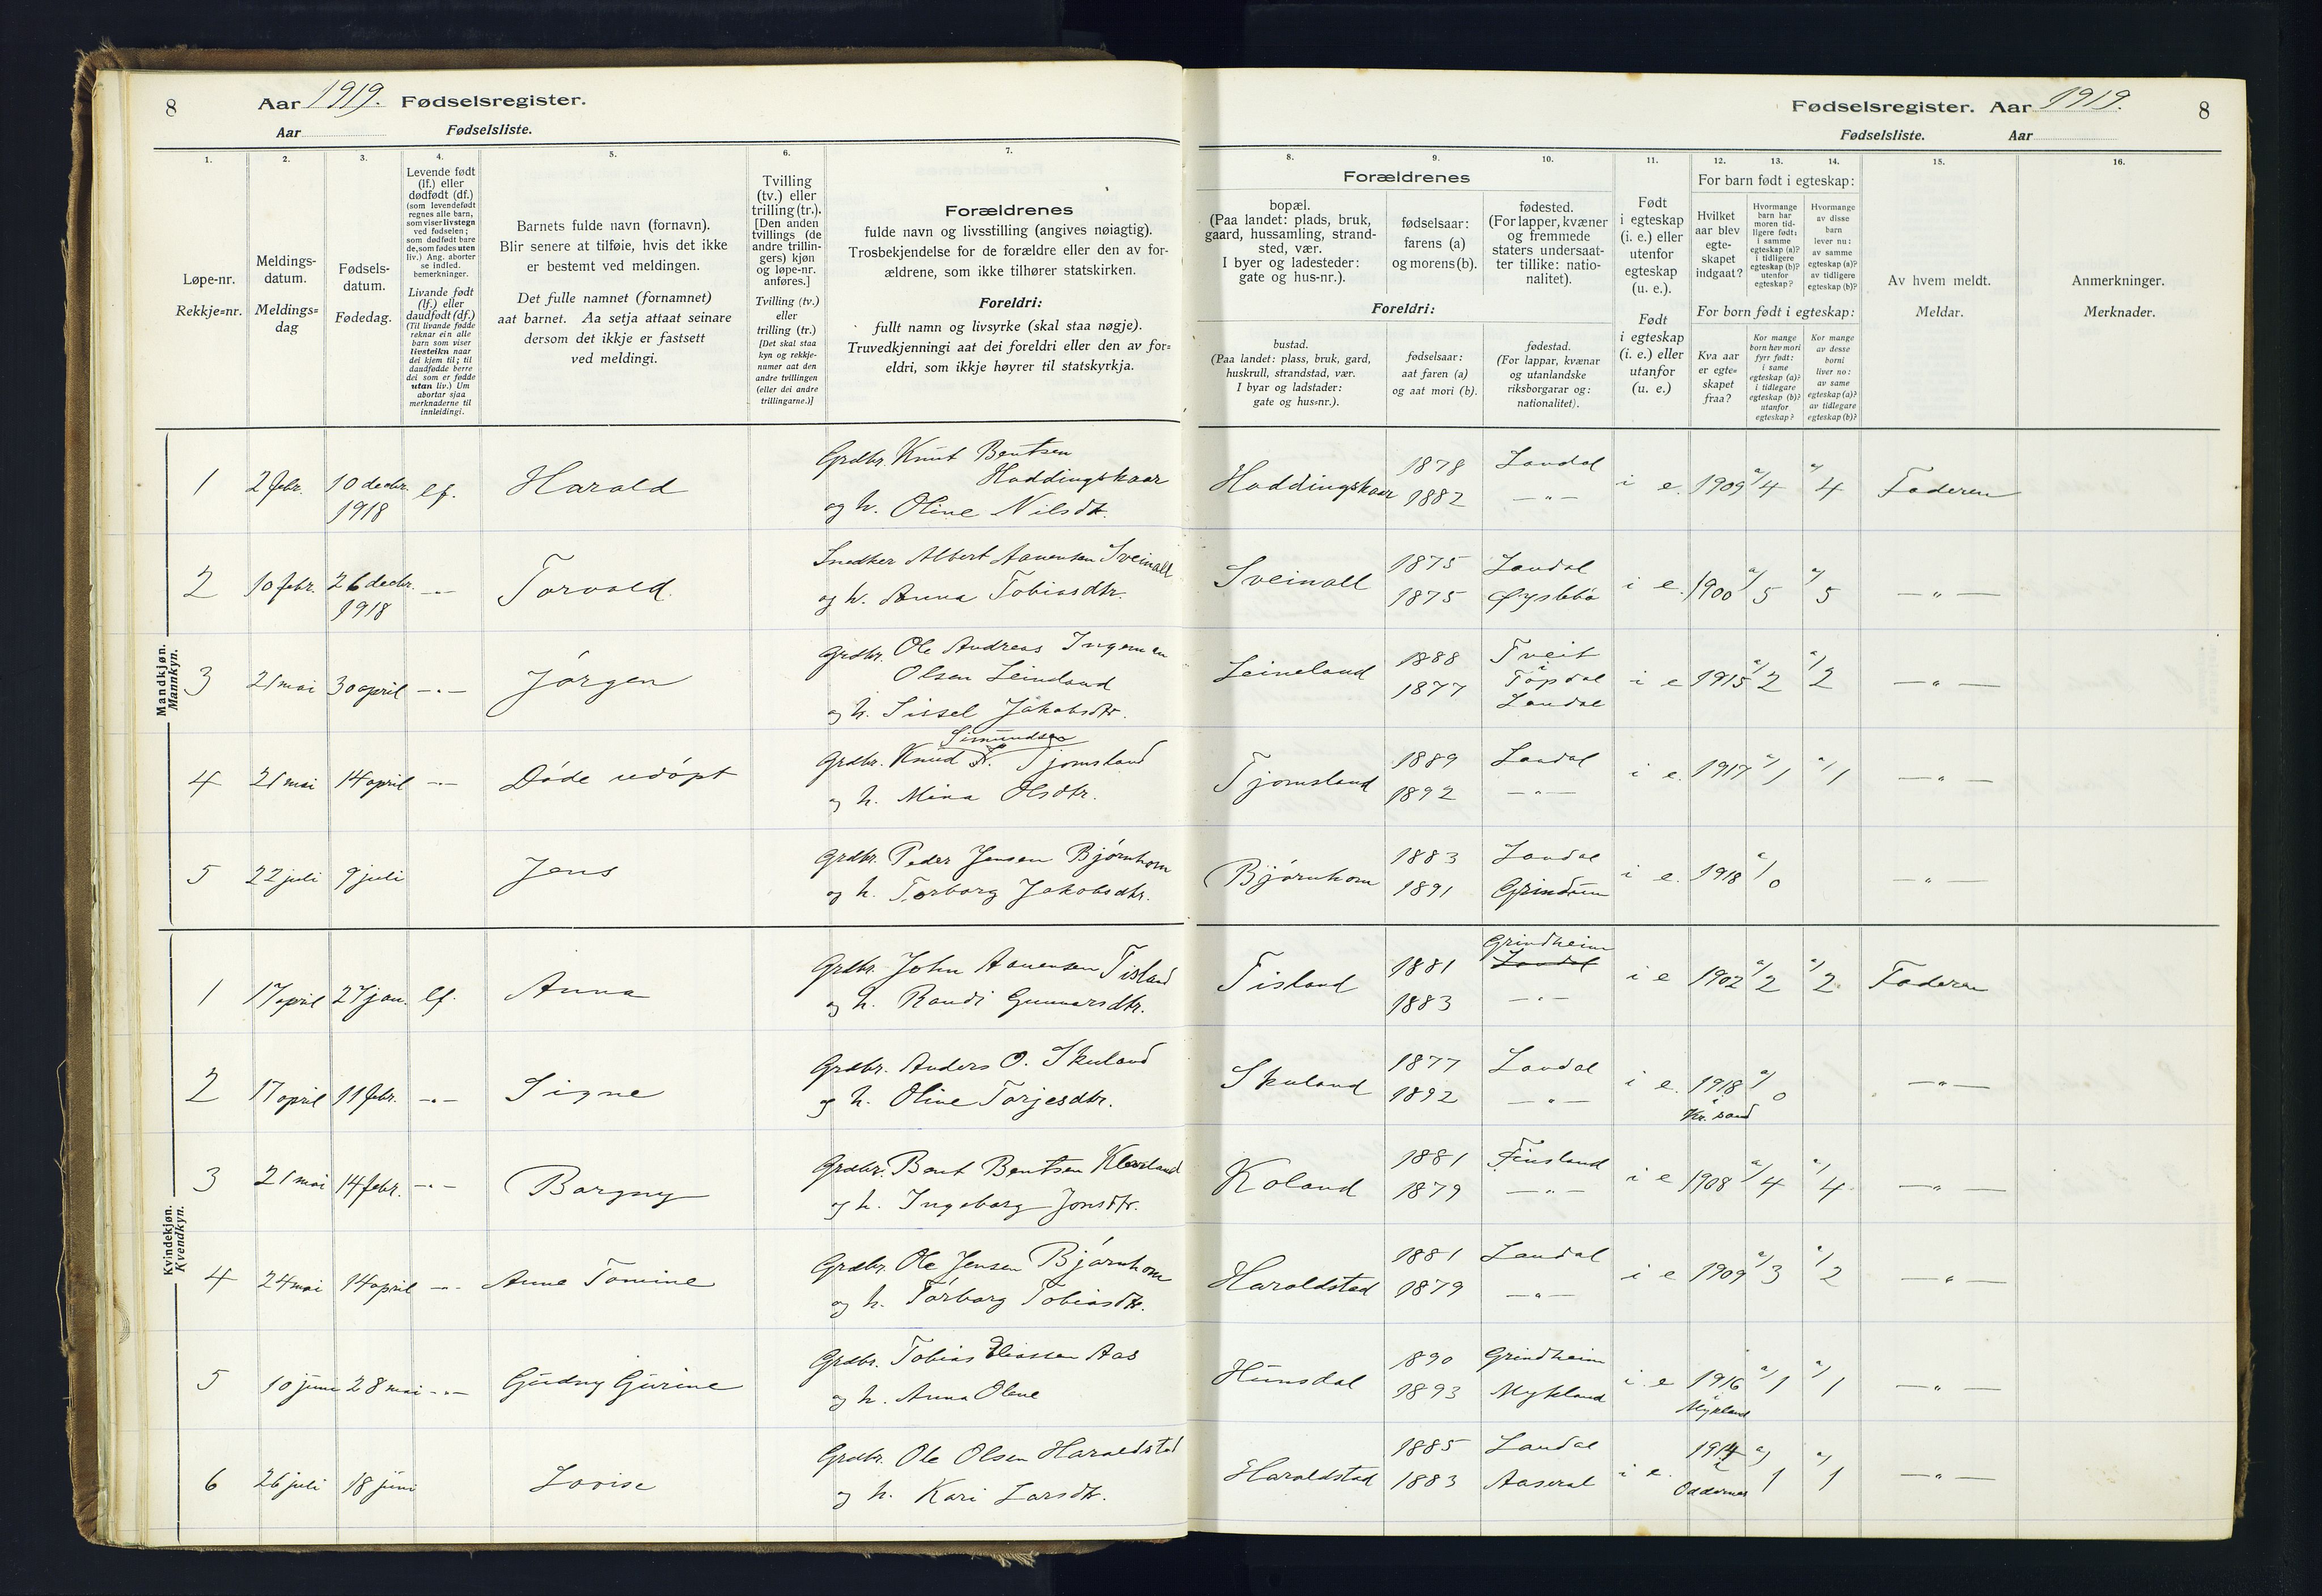 8 Aar 1919. Fødselsregister.
Aar Fødselsliste.
1. 2. 3. 4. 5. 6. 7.
Løpe-nr.
Rekkje=nr.
Meldings-
datum.
Meldings=
dag
Fødsels-
datum.
Fødedag.
Levende født
(lf.) eller
dødfødt (df.)
(som levendefødt
regnes alle barn,
som viser livstegn
ved fødselen;
som dødfødt bare
de, som fødes uten
liv.) Ang. aborter
se indled.
bemerkninger.
Livande født
(lf.) eller
daudfødt (df.)
(Til livande fødde
reknar ein alle
barn som viser
livsteikn naar
dei kjem til; til
daudfødde berre
dei som er fødde
utan liv.) Um
abortar sjaa
merknaderne til
innleidingi.
Barnets fulde navn (fornavn).
Blir senere at tilføie, hvis det ikke
er bestemt ved meldingen.
Det fulle namnet (fornamnet)
aat barnet. Aa setja attaat seinare
dersom det ikkje er fastsett
ved meldingi.
Tvilling
(tv.) eller
trilling (tr.).
[Den anden
tvillings (de
andre trillin-
gers) kjøn
og løpe-nr.
anføres.]
Tvilling (tv.)
eller
trilling (tr.)
[Det skal staa
kyn og rekkje-
numer aat den
andre tvillingen
(eller dei andre
trillingarne.)]
Forældrenes
fulde navn og livsstilling (angives nøiagtig).
Trosbekjendelse for de forældre eller den av for-
ældrene, som ikke tilhører statskirken.
Foreldri:
fullt namn og livsyrke (skal staa nøgje).
Truvedkjenningi aat dei foreldri eller den av for=
eldri, som ikkje høyrer til statskyrkja.
Mandkjøn.
Mannkyn.
1 2 febr. 10 decbr. 1918 lf. Harald Grdbr. Knut Bentsen
Haddingskaar
og h. Oline Nilsdtr.
2 10 febr. 26 decbr. 1918 -"- Torvald. Snedker Albert Aanensen Sveinall
og h. Anna Tobiasdtr.
3 21 mai 30 april -"- Jørgen Grdbr. Ole Andreas Ingeman
Olsen Leineland
og h. Sissel Jakobsdtr.
4 21 mai 14 april -"- Døde udøpt Simundsen
Grdbr. Knud Tjomsland
og h. Mina Olsdtr.
5 22 juli 9 juli Jens Grdbr. Peder Jensen Bjørnhom
og h. Torborg Jakobsdtr.
Kvindekjøn.
Kvendkyn.
1 17 april 27 jan. lf. Anna Grdbr. John Aanensen Tisland
og h. Randi Gunnarsdtr.
2 17 april 11 febr. -"- Signe Grdbr. Anders O. Skuland
og h. Oline Torjesdtr.
3 21 mai 14 febr. -"- Borgny Grdbr. Bent Bentsen
og h. Ingeborg Jonsdtr.
4 24 mai 14 april -"- Anne Tomine Grdbr. Ole Jensen Bjørnhom
og h. Torborg Tobiasdtr.
5 10 juni 28 mai -"- Gudny Gurine Grdbr. Tobias Eliassen Aas
og h. Anna Olene
6 26 juli 18 juni Lovise Grdbr. Ole Olsen Haraldstad
og h. Kari Larsdtr.
Fødselsregister. Aar 1919. 8
Fødselsliste. Aar
8. 9. 10. 11. 12. 13. 14. 15. 16.
Forældrenes
bopæl.
(Paa landet: plads, bruk,
gaard, hussamling, strand-
sted, vær.
I byer og ladesteder:
gate og hus-nr.).
fødselsaar:
farens (a)
og morens (b).
fødested.
(For lapper, kvæner
og fremmede
staters undersaat-
ter tillike: natio-
nalitet).
Foreldri:
bustad.
(Paa landet: plass, bruk, gard,
huskrull, strandstad, vær.
I byar og ladstader:
gate og hus=nr.).
fødselsaar:
aat faren (a)
og aat mori (b).
fødestad.
(For lappar, kvænar
og utanlandske
riksborgarar og:
nationalitet).
Født
i egteskap
(i. e.) eller
utenfor
egteskap
(u. e.).
Født
i egteskap
(i. e.) eller
utanfor
(u. e.)
For barn født i egteskap:
Hvilket
aar blev
egte-
skapet
indgaat?
Hvormange
barn har
moren tid-
ligere født:
i samme
egteskap (a)?
i tidligere
egteskap (b)?
utenfor
egteskap?
Hvormange
av disse
barn
lever nu:
av samme
egteskap (a)?
av tidligere
egteskap (b)?
For born født i egteskap:
Kva aar
er egte=
skapet
fraa?
Kor mange
born hev mori
fyrr født:
i same
egteskap (a)?
i tidlegare
egteskap (b)?
utanfor
egteskap?
Kor mange
av desse
borni
liver no:
av same
egteskap (a)?
av tidlegare
egteskap (b)?
Av hvem meldt.
Meldar.
Anmerkninger.
Merknader.
Haddingskaar 1878 Laudal
1882 -"- i e. 1909 a/4 a/4 Faderen
Sveinall 1875 Laudal
1875 Øyslebø i e. 1900 a/5 a/5 -"-
Leineland 1888 Tveit
i
Topdal
1877 Laudal i e 1915 a/2 a/2 -"-
Tjomsland 1889 Laudal
1892 -"- i e. 1917 a/1 a/1 -"-
Bjørnhom 1883 Laudal
1891 Grindum i e. 1918 a/0 -"-
Tisland 1881 Grindheim
Laudal
1883 -"- i e 1902 a/2 a/2 Faderen
Skuland 1877 Laudal
1892 -"- i e. 1918 a/0 -"-
i
Kr. sand
Koland 1881 Finsland
1879 -"- i e 1908 a/4 a/4 -"-
Haraldstad 1881 Laudal
1879 -"- i e 1909 a/3 a/2 -"-
Hunsdal 1890 Grindheim
1893 Mykland i e 1916 a/1 a/1 -"-
i
Mykland
Haraldstad 1885 Laudal
1883 Aaseral i e. 1914 a/1 a/1 -"-
i
Oddernes